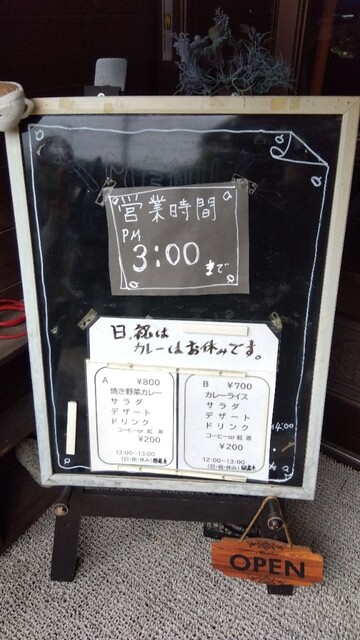 営業時間
PM
3:00まで
日、祝は
カレーはお休みです。
A ¥800
焼き野菜カレー
サラダ
デザート
ドリンク
コーヒーor紅茶
¥200
12:00-13:00
(日・祝・休み)
B ¥700
カレーライス
サラダ
デザート
ドリンク
コーヒーor紅茶
¥200
12:00~13:00
(日・祝・休み)
OPEN